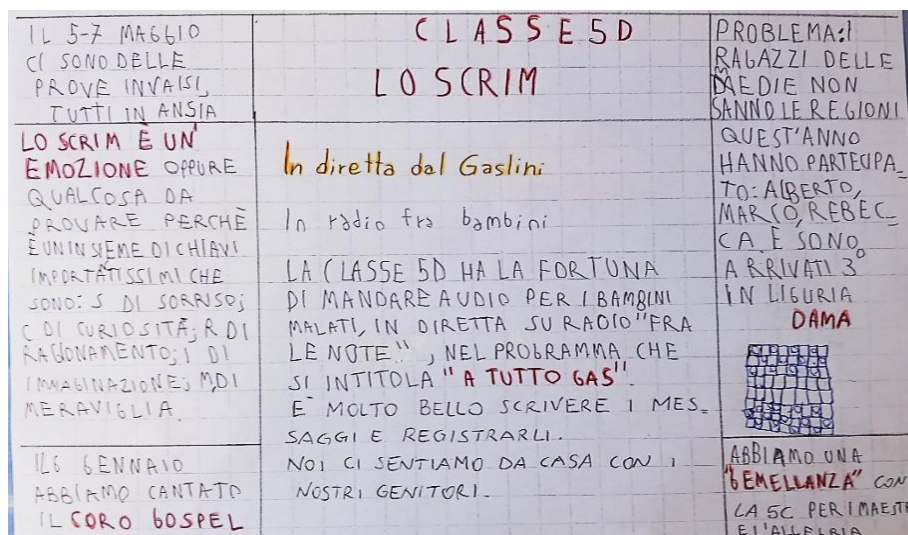 IL 5-7 MAGGIO
CI SONO DELLE
PROVE INVALSI,
TUTTI IN ANSIA
LO SCRIM È UN'
EMOZIONE OPPURE
QUALCOSA DA
PROVARE PERCHÈ
È UN INSIEME DI CHIAVI
IMPORTÀTISSIMI CHE
SONO: S DI SORRISO;
C DI CURIOSITÃ; R DI
RAGIONAMENTO; I DI
IMMAGINAZIONE; M DI
MERAVIGLIA.
IL 6 GENNAIO
ABBIAMO CANTATO
IL CORO GOSPEL
CLASSE 5D
LO SCRIM
In diretta dal Gaslini
In radio fra bambini
LA CLASSE 5D HA LA FORTUNA
DI MANDARE AUDIO PER I BAMBINI
MALATI, IN DIRETTA SU RADIO "FRA
LE NOTE", NEL PROGRAMMA CHE
SI INTITOLA "A TUTTO GAS".
E' MOLTO BELLO SCRIVERE I MES_
SAGGI E REGISTRARLI.
NOI CI SENTIAMO DA CASA CON I
NOSTRI GENITORI.
PROBLEMA: I
RAGAZZI DELLE
MEDIE NON
SANNO LE REGIONI
QUEST'ANNO
HANNO PARTECIPA_
TO: ALBERTO,
MARCO, REBEC_
CA E SONO
ARRIVATI 3°
IN LIGURIA
DAMA
ABBIAMO UNA
"GEMELLANZA" CON
LA 5C PER I MAEST
E L'ALLEGRIA